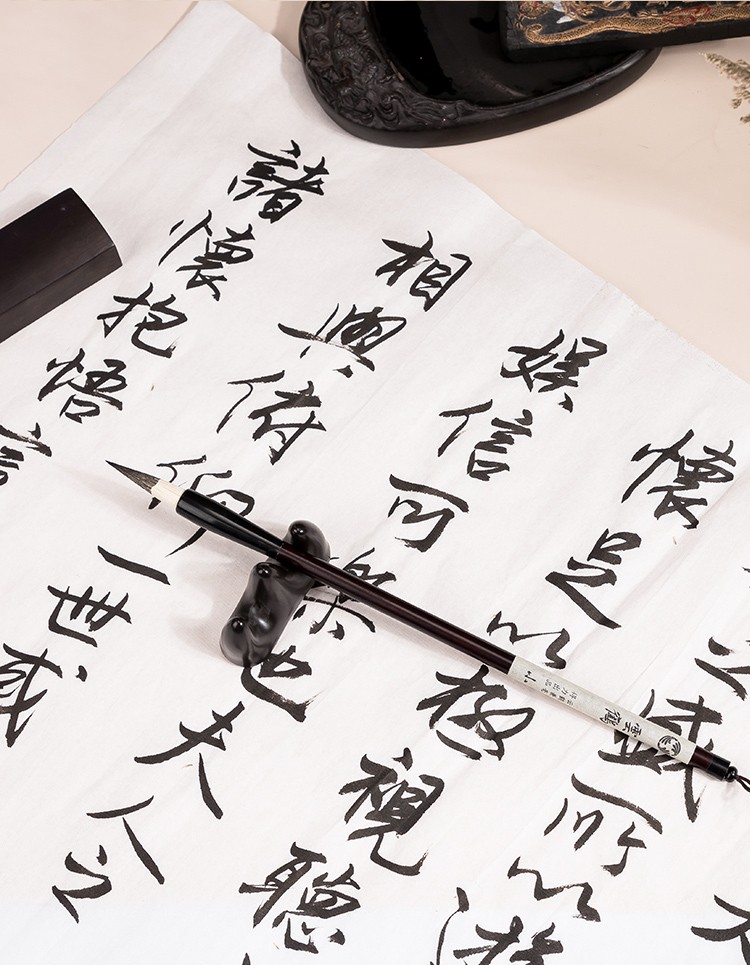 之盛所以遊
懷足以極視聽
娛信可樂也夫人之
相與俯仰一世或
諸懷抱悟言
雲鶴
小